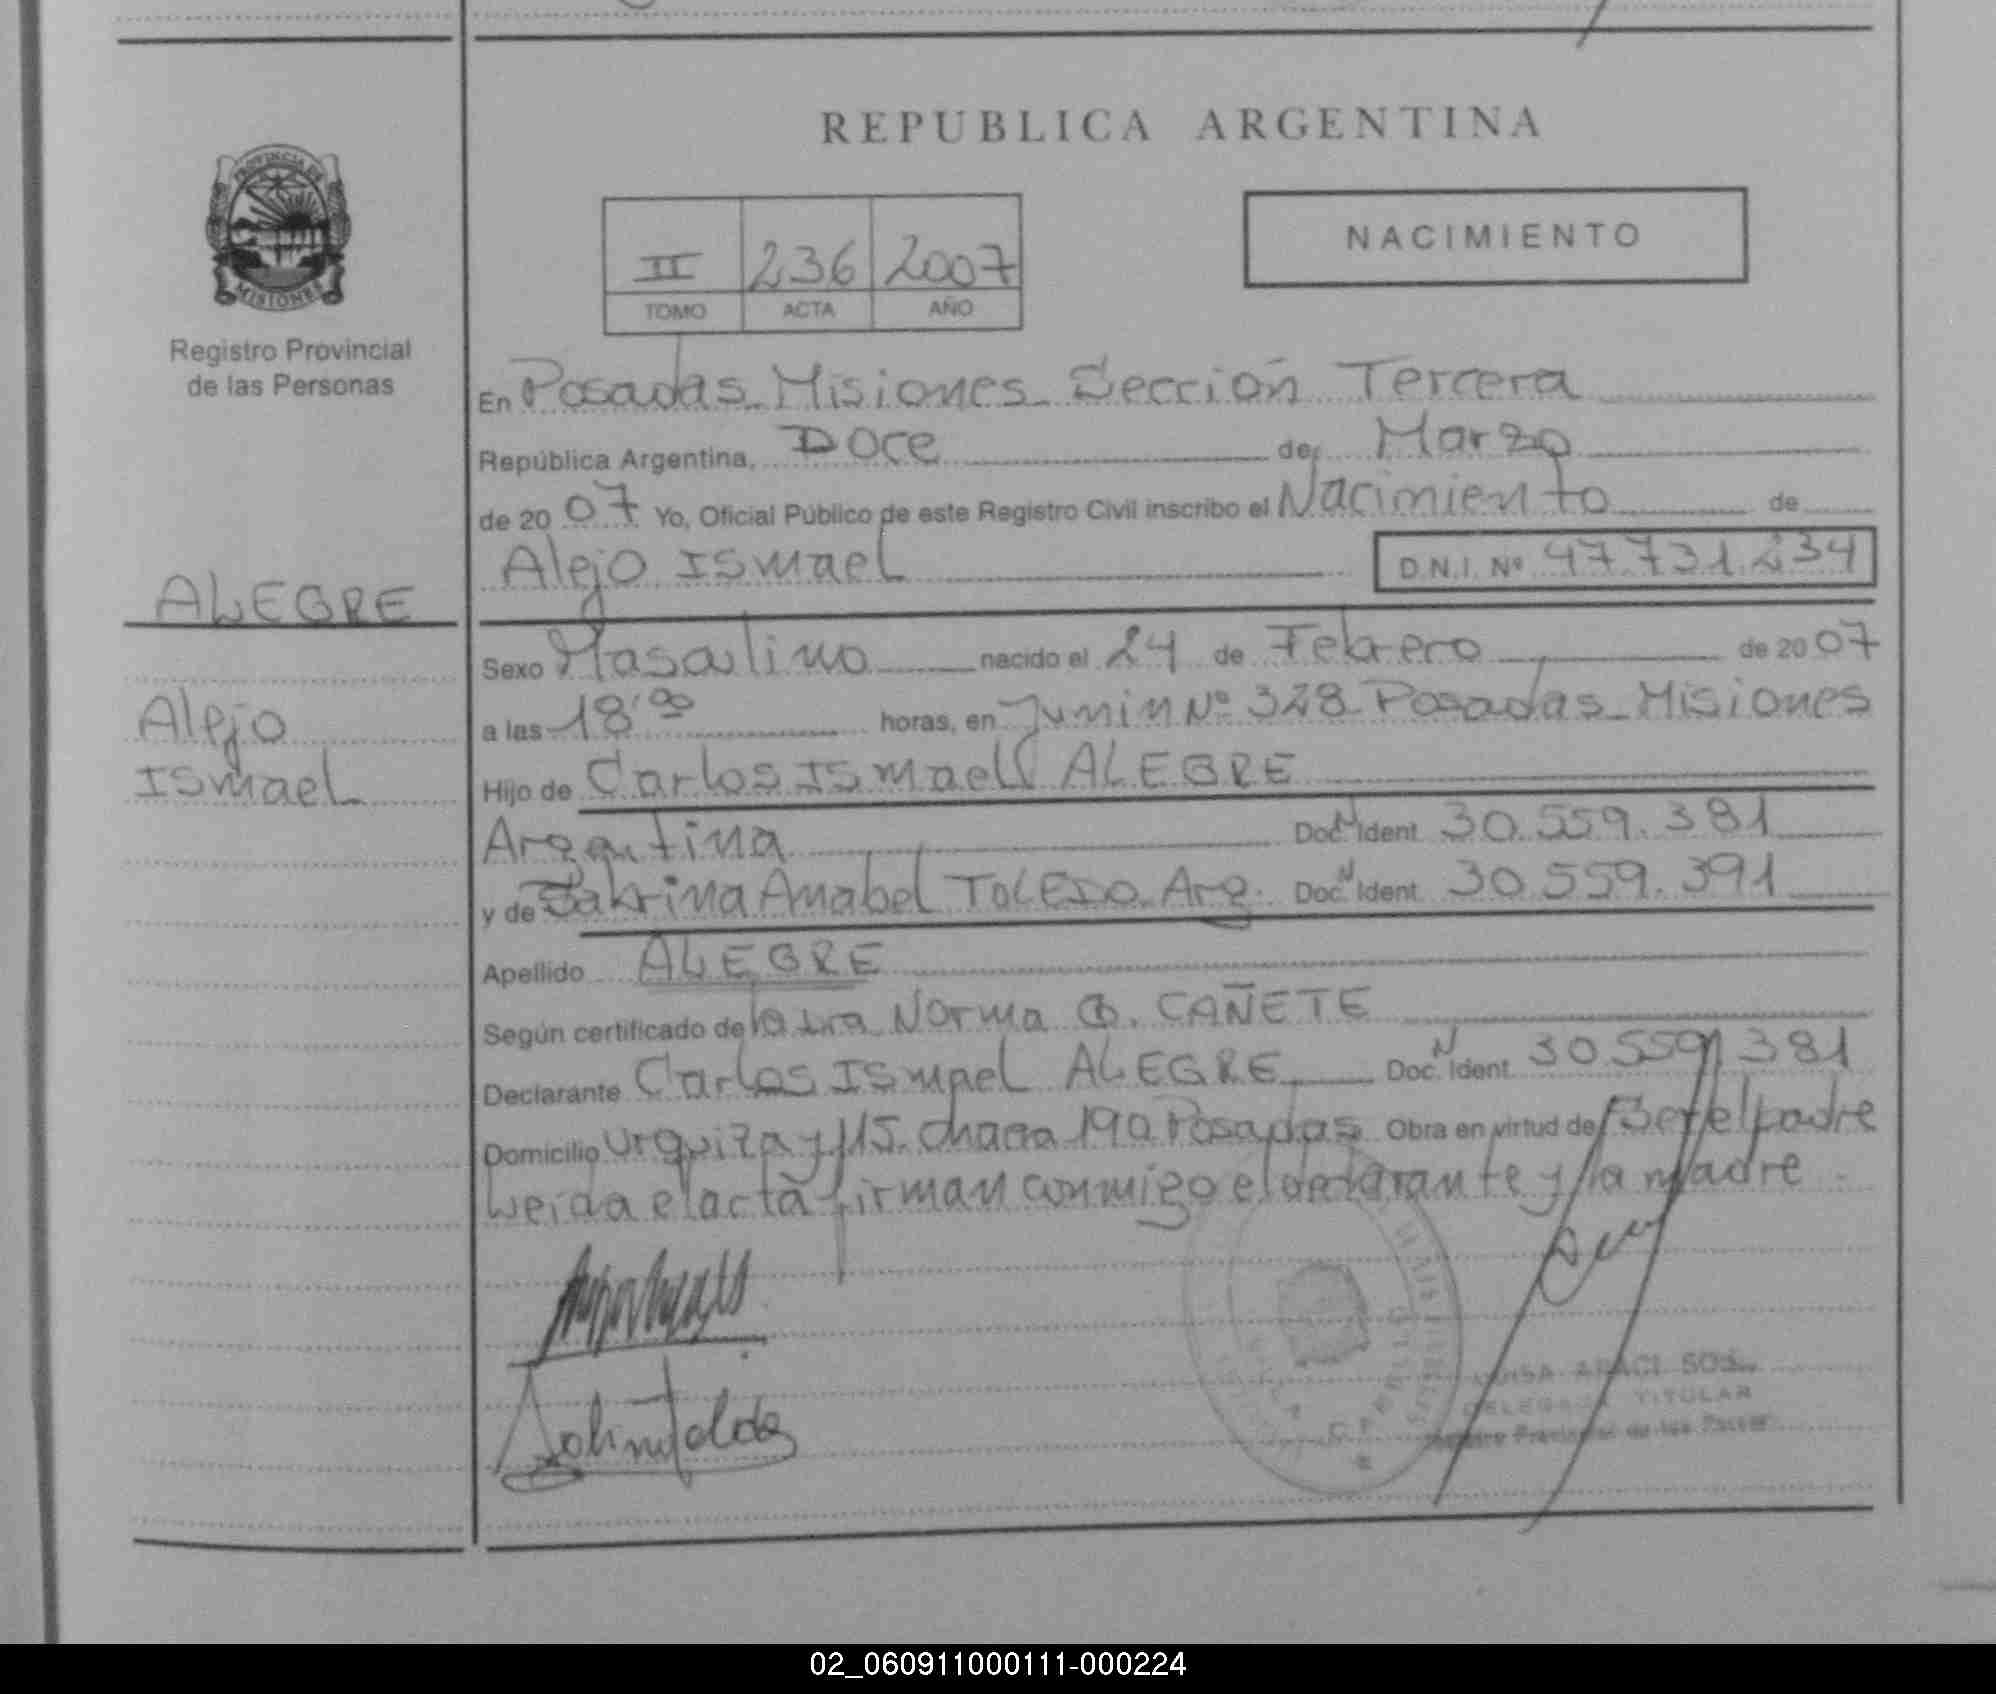 REPUBLICA ARGENTINA
PROVINCIA DE
MISIONES
Registro Provincial
de las Personas
NACIMIENTO
II 236 2007
TOMO ACTA AÑO
En Posadas Misiones Sección Tercera
República Argentina, Doce de Marzo
de 20 07 Yo, Oficial Público de este Registro Civil inscribo el Nacimiento de
Alejo Ismael D.N.I. Nº 47.731.234
ALEGRE
Alejo
Ismael
Sexo Masculino nacido el 24 de Febrero de 20 07
a las 18:00 horas, en Junin Nº 328 Posadas Misiones
Hijo de Carlos Ismael ALEGRE
Argentina Doc. N Ident. 30.559.381
y de Sabrina Anabel TOLEDO Arg. Doc. N Ident. 30.559.391
Apellido ALEGRE
Según certificado de la Norma CAÑETE
Declarante Carlos Ismael ALEGRE Doc. N Ident. 30.559.381
Domicilio Urquiza y 115 chacra 190 Posadas Obra en virtud de Ser el padre
Leida el acta firman conmigo el declarante y la madre
TITULAR
02_060911000111-000224